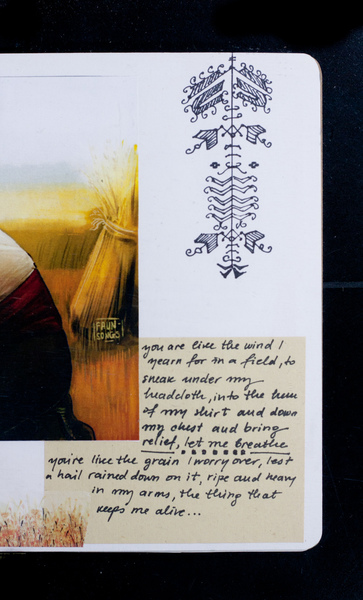 FAUN-
SONGS
you are like the wind I
yearn for in a field, to
sneak under my
headcloth, into the hem
of my shirt and down
my chest and bring
relief, let me breathe
you're like the grain I worry over, lest
a hail rained down on it, ripe and heavy
in my arms, the thing that
keeps me alive...